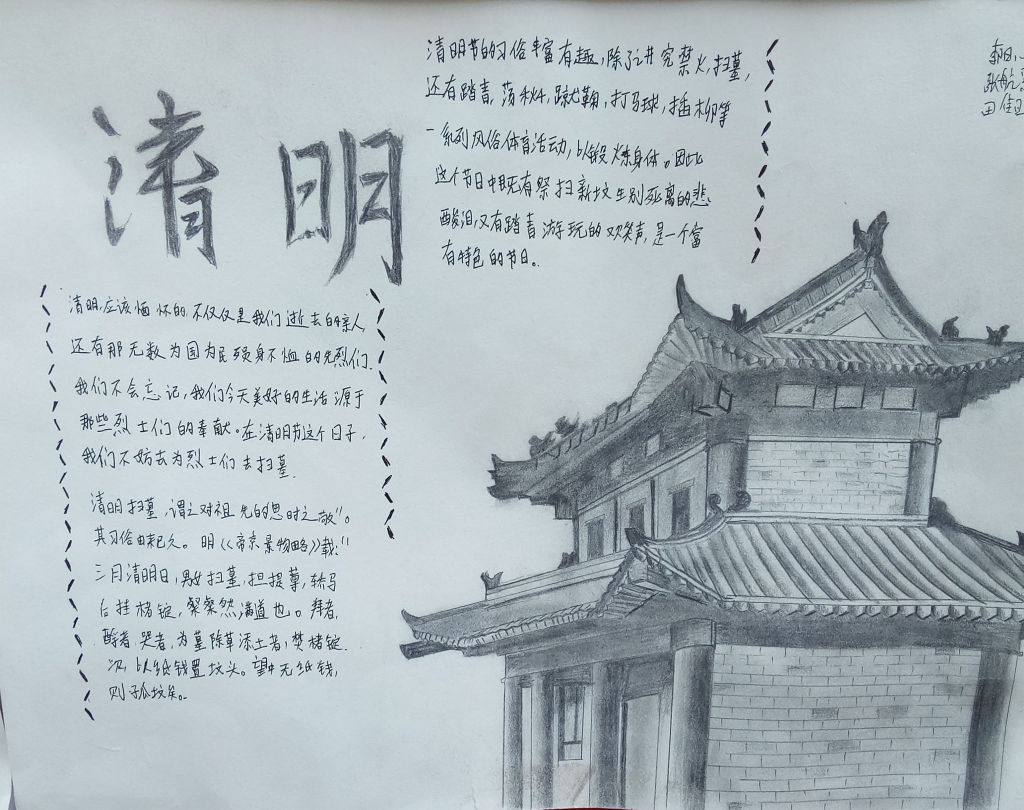 清明
清明节的习俗丰富有趣,除了讲究禁火,扫墓,
还有踏青,荡秋千,蹴鞠,打马球,插柳等
一系列风俗体育活动,以锻炼身体。因此
这个节日中既有祭扫新坟生别死离的悲
酸泪,又有踏青游玩的欢笑声,是一个富
有特色的节日。
清明,应该缅怀的,不仅仅是我们逝去的亲人,
还有那无数为国为民殒身不恤的先烈们.
我们不会忘记,我们今天美好的生活源于
那些烈士们的奉献。在清明节这个日子,
我们不妨去为烈士们去扫墓.
清明扫墓,谓之对祖先的思时之敬"。
其习俗由来已久。明《帝京景物略》载:"
三月清明日,男女扫墓,担提尊,轿马
后挂楮锭,粲粲然满道也。拜者,
酹者,哭者,为墓除草添土者,焚楮锭
次,以纸钱置坟头。望中无纸钱,
则孤坟矣。